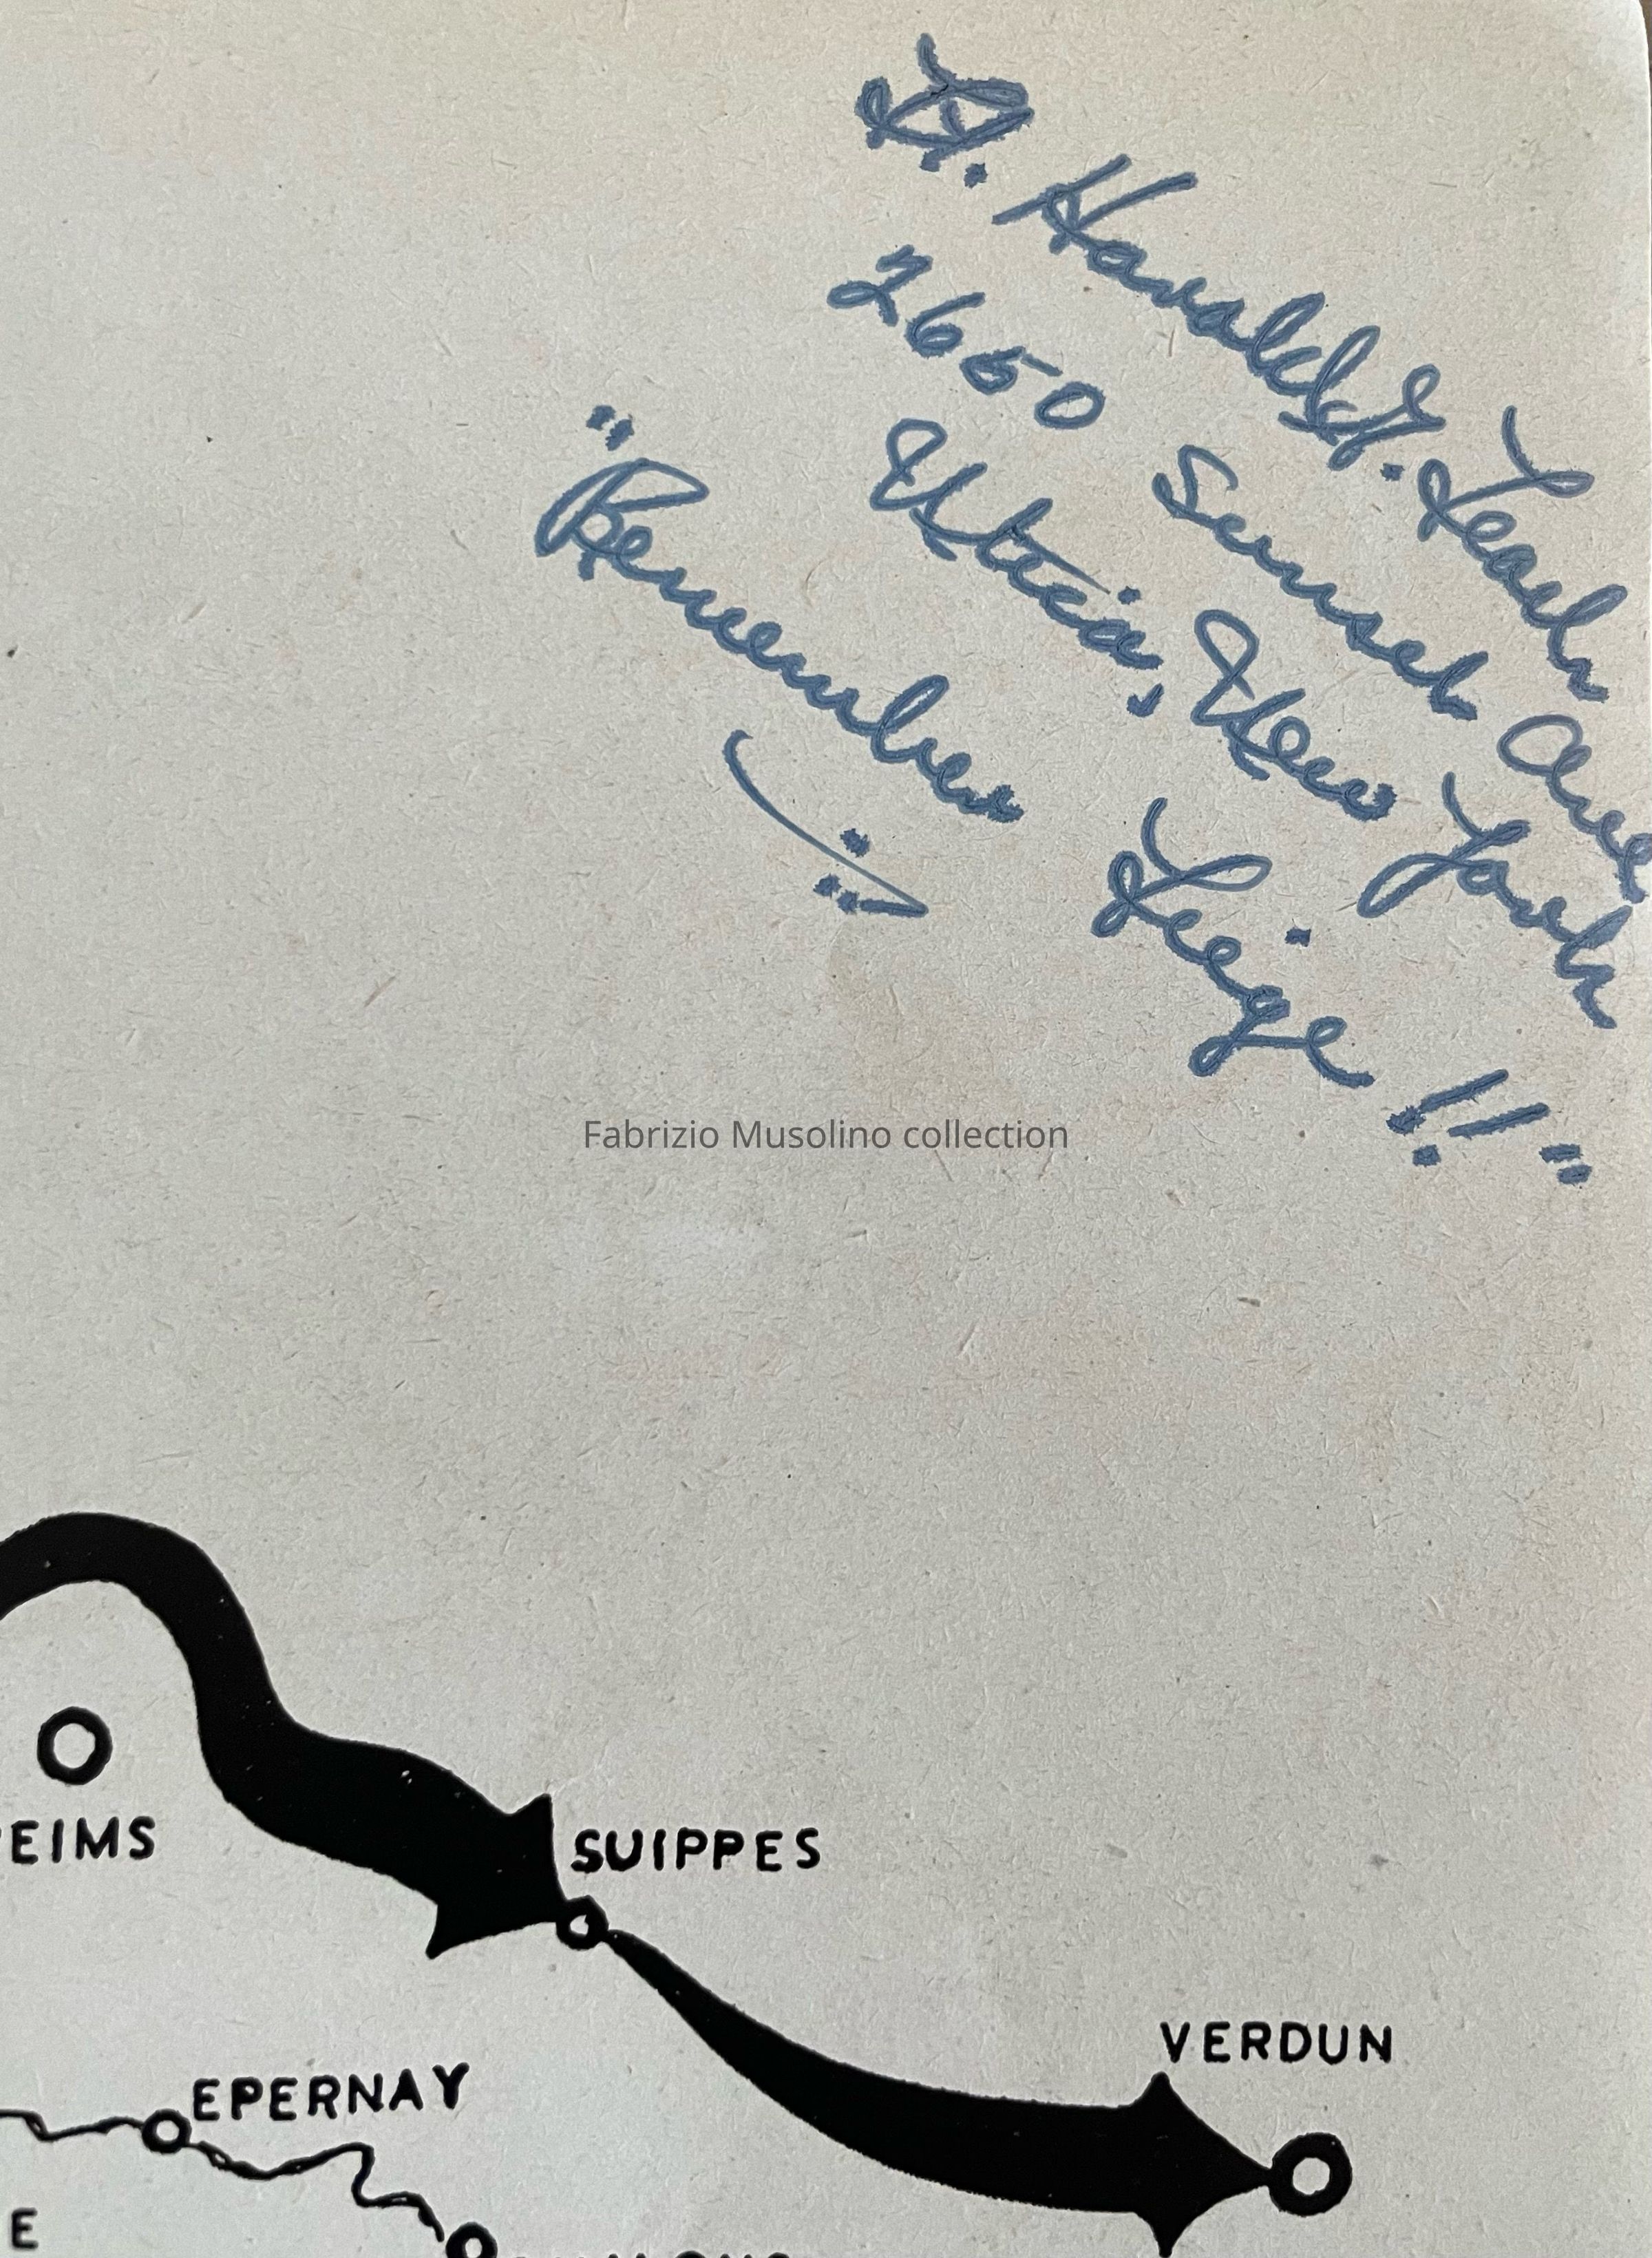 Lt. Harold G. Leach
2650 Sunset Ave
Utica, New York
"Remember Leige !!"
Fabrizio Musolino collection
EIMS
SUIPPES
VERDUN
EPERNAY
E